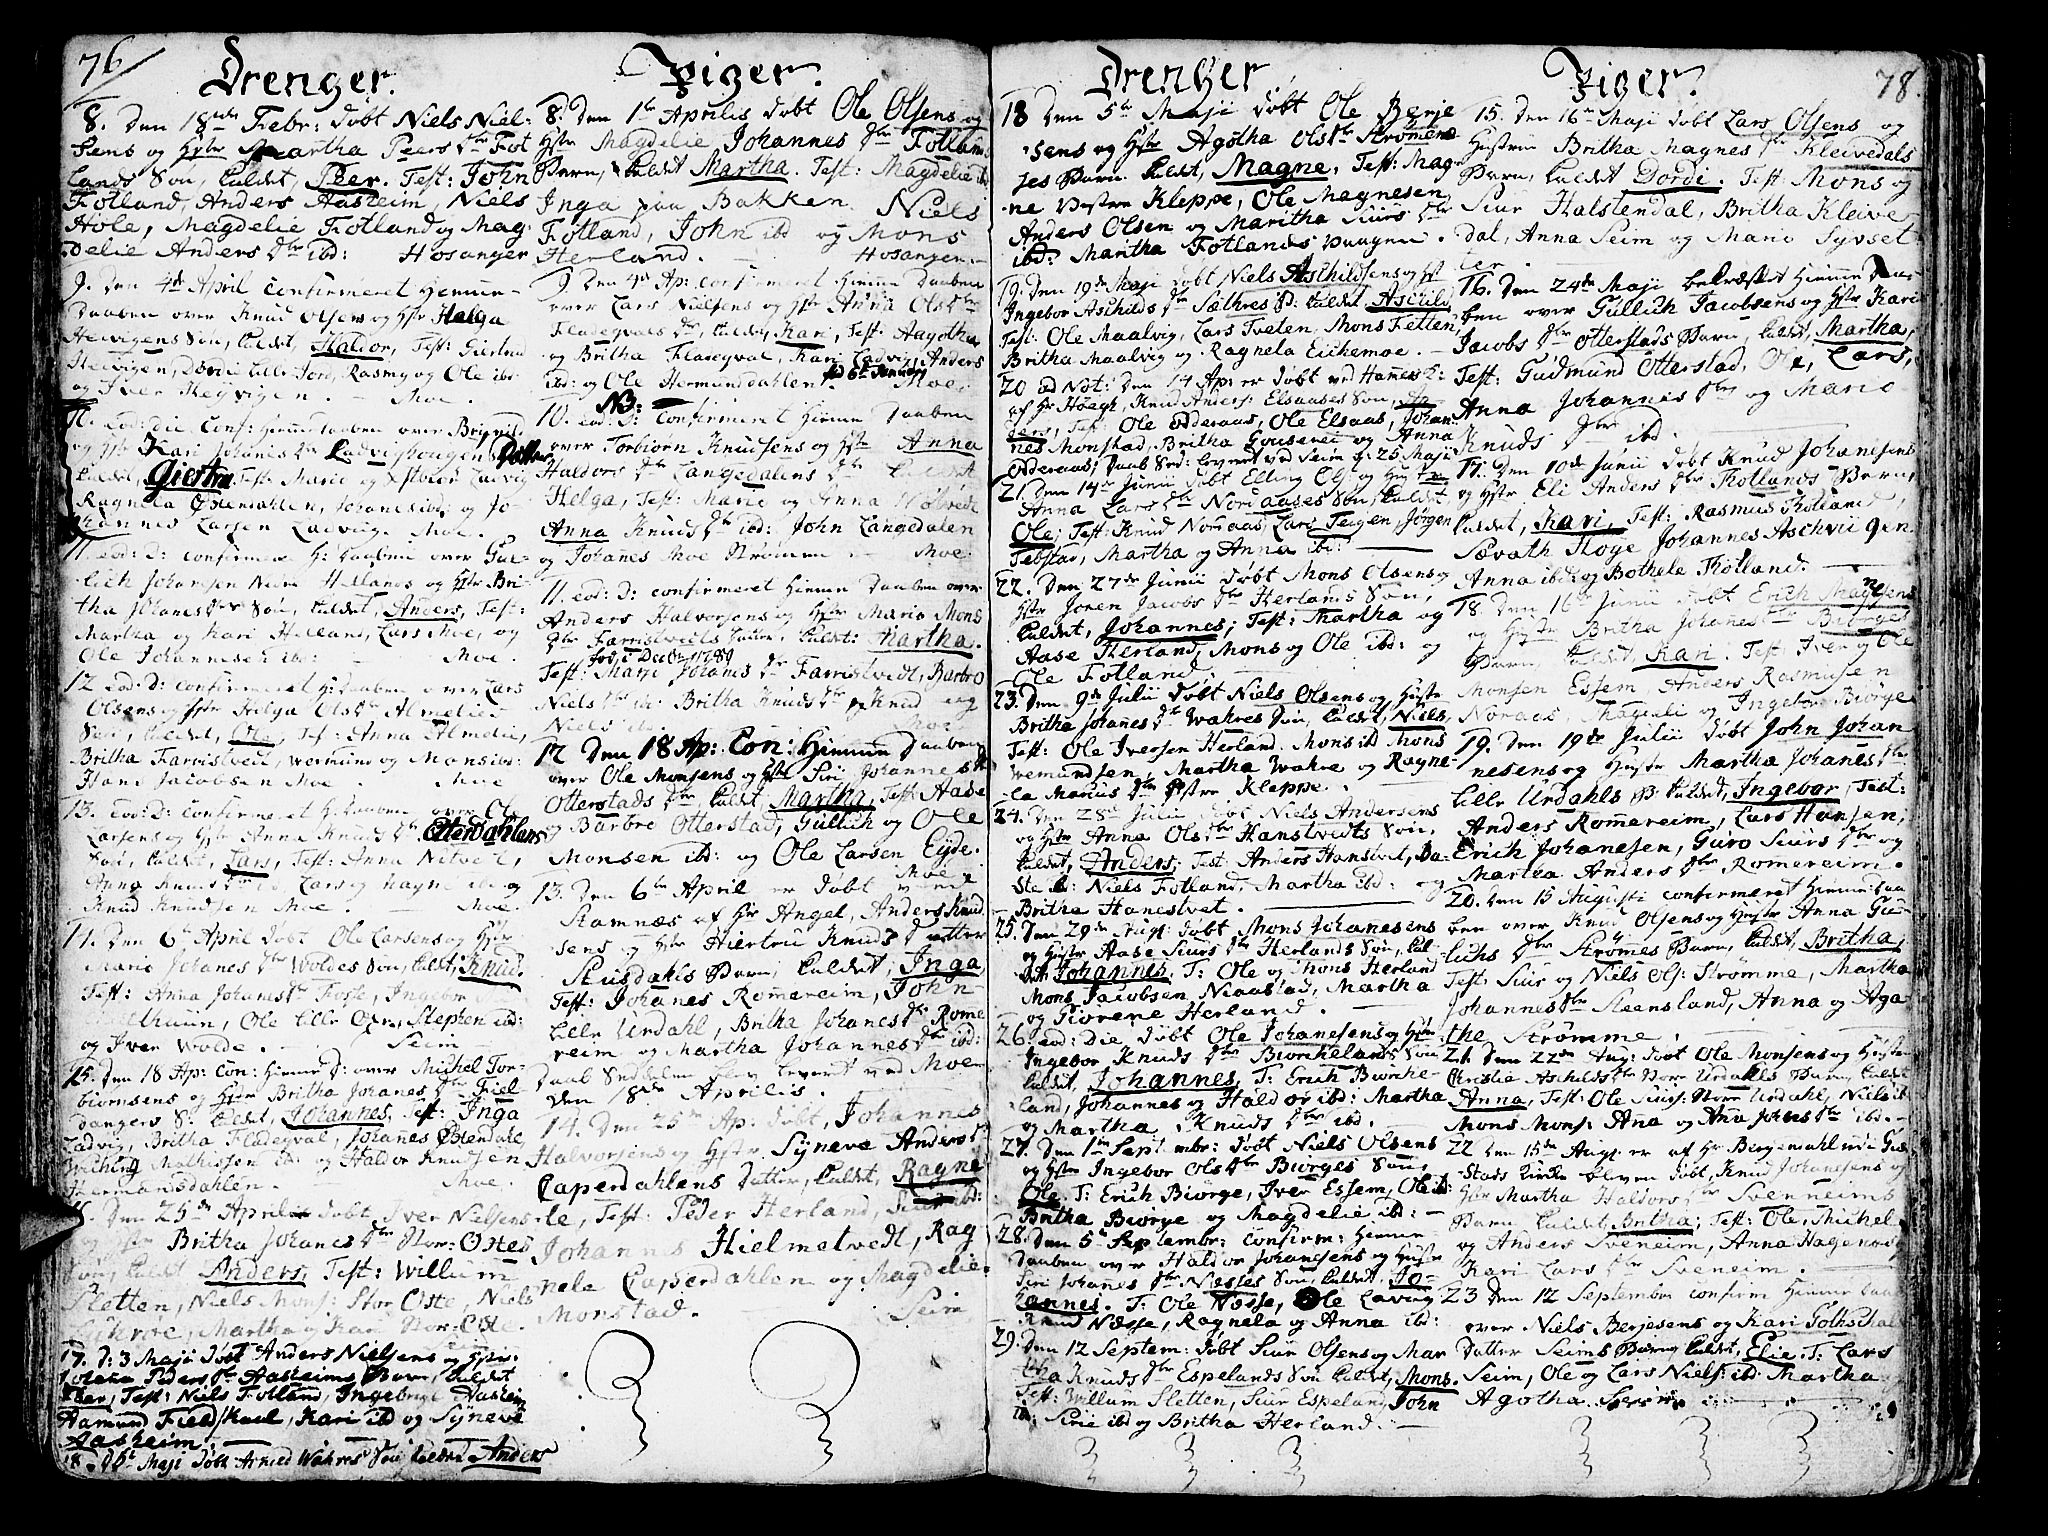 76
Drenger.
8. Den 18de Febr: døbt Niels Niel-
sens og Hstr Martha Peers dtr Fot
lands Søn, kaldet, Peer. Test: John
Fotland, Anders Aasheim, Niels
Hole, Magdelie Fotland og Mag-
delie Anders dtr ibd: Hosanger
9. Den 4de April confirmeret Hjemme-
daaben over Knud Olsens og Hstr Helga
Helvigens Søn, kaldet, Haldor, Test: Giertrud
Helvigen, Dordi Lille Jord, Rasmg og Ole ibd
og Iver Heyvigen. - Moe.
10. eod: die conf: Hjemmedaaben over Brynild
og Hstr Kari Johanes dtr Ladvighougens Datter
kaldet, Giertru Test: Mario og Ladvig
Ragnela Østendahlen, Johanes ibd og Jo-
hannes Larsen Ladvig. Moe.
11. eod: D: confirmeret H: daaben over Gul-
lich Johansen Nedre Hellands og Hstr Bri-
tha Johanes dtr Søn, kaldet, Anders, Test:
Martha og Kari Helland, Lars Moe, og
Ole Johannesen ibd: Moe.
12 eod: D: confirmeret H: daaben over Lars
Olsens og Hstr Helga Ols dtr Almelies
Søn, kaldet, Ole, Test: Anna Almelie,
Britha Farristvedt, Wermund og Mons ibd:
Hans Jacobsen Moe. Moe
13. eod: D: confirmeret H: daaben over Ole
Larsens og Hstr Anna Knuds dtr Otterdahlens
Søn, kaldet, Lars, Test: Anna
Anna Knuds dtr ibd, Lars og Magne ibd og
Knud Knudsen Moe. - Moe.
14. Den 6te April døbt Ole Larsens og Hstr
Mario Johanes dtr Woldes Søn, kaldet, Knud.
Test: Anna Johanes dtr Fosse, Ingebor
Ole Lille Stephen ibd:
og Iver Wolde. Seim
15. Den 18 Ap: Con: Hjemme D: over Michel Tor-
biørnsens og Hstr Britha Johanes dtr Fiel
dangers S: kaldet, Johannes, Test: Inga
Ladvig, Britha Fladegval, Johanes Østendahl,
Mathissen ibd og Haldor Knudsen
Hermansdahlen. Moe.
16. Den 25de Aprilis døbt Iver Nielsens
og Hstr Britha Johanes dtr Stor-Ostes
Søn, kaldet Anders, Test: Willum
Sletten, Niels Mons: Stor Oste, Niels
Martha og Kari Stor-Oste.
17. D: 3 Maji døbt Anders Nielsens og Hstr:
Peders dtr Aasheims Barn, kaldet
Peer, Test: Niels Fotland, Ingebrigt Aasheim
Aamund Fieldskaal, Kari ibd og Synneve
Aasheim. -
18. Maji døbt Wahres Søn kaldet Anders
Piger.
8. Den 1te Aprilis døbt Ole Olsens og
Hstr Magdelie Johannes dtr Fotlands
Barn, kaldet Martha. Test: Magdelie ibd
Inga paa Bakken. Niels
Fotland, John ibd og Mons
Herland. - Hosanger. -
9. Den 4de Ap: confirmeret Hjemme Daaben
over Lars Nielsens og Hstr Anna Ols dtr
Fladegvals dtr, kaldet, Kari, Test: Aagotha
og Britha Fladegval, Kari Ladvig, Anders
ibd: og Ole Hermunsdahlen. fød 6te Januarij Moe.
NB:
10. eod: D: confirmeret Hjemme Daaben
over Torbiorn Knudsens og Hstr Anna
Haldors dtr Langedalens dtr kaldt
Helga, Test: Mario og Anna
Anna Knuds dtr ibd: John Langedalen
og Johanes Moe Strømme - Moe:
11. eod: D: confirmeret Hjemme Daaben over
Anders Halvorsens og Hstr Mario Mons
dtr Farristvedts Datter, kaldt: Martha.
fød i Decbr 1789
Test: Mari Johanes dtr Farristvedt, Barbro
Niels dtr ibd: Britha Knuds dtr Knud og
Niels ibd. Moe:
12 Den 18 Ap: Con: Hjemme Daaben
over Ole Monsens og Hstr Siri Johannes dtr
Otterstads dtr, kaldet, Martha, Test: Aase
og Barbro Otterstad, Gullich og Ole
Monsen ibd: og Ole Larsen Eyde.
Moe
13. Den 6te April er døbt ved
Ramnæs af Hr Angel, Anders Knud
sens og Hstr Hiertru Knuds datter
Slusdahls Barn, kaldet, Inga
Test: Johanes Romereim, John
Lille Urdahl, Britha Johanes dtr Rome
reim og Martha Johannes dtr ibd:
Daab Seddelen blev leverit ved Moe
den 18de Aprilis.
14. Den 25de Ap: døbt, Johannes
Halvorsens og Hstr Syneve Anders dtr
Caperdahlens Datter, kaldet, Ragne
le, Test: Peder Herland, Siur ibd:
Johannes Hielmetvedt, Rag
nele Caperdahlen og Magdelie
Monstad. Seim
Drenger
18 Den 5te Maji døbt Ole Berje
sens og Hstr Agotha Ols dtr Strømens
ses Barn kaldet, Magne, Test: Mag
ne Vestre Kleppe, Ole Magnesen
Anders Olsen og Maritha Siurs dtr
ibd: Martha Fotlands Vaagne.
19. Den 19de Maji døbt Niels Aschildsens og Hst
Ingebor Aschilds dtr Sælthres S: kaldet, Aschild,
Test: Ole Maalvig, Lars Tveten, Mons Tetten,
Britha Maalvig og Ragnela Eichemoe. -
20 ad Not: Den 14 Ap: er døbt ved Hamers K:
af Hr Høegh, Knud Anders: Elsaases Søn, An
ders, Test: Ole odderaas, Ole Elsaas, Johan-
nes Monstad, Britha og Anna
odderaas; Daab Sed: leveret ved Seim d: 25 Maji
21. Den 14de Junii døbt Elling Ols: og Hustru
Anna Lars dtr Nordaases Søn, kaldet
Ole; Test: Knud Noraas, Lars Teigen, Jørgen
Tebstad, Martha og Anna ibd: -
22. Den 27de Junii døbt Mons Olsens og
Hstr Joren Jacobs dtr Herlands Søn,
kaldet, Johannes; Test: Martha og
Aase Herland, Mons og Ole ibd: og
Ole Fotland; -
23. Den 9de Julii døbt Niels Olsens og Hustr
Britha Johanes dtr Wahres Søn, kaldet, Niels,
Test: Ole Iversen Herland. Mons ibd Mons
Wemundsen, Martha Wahre og Ragne-
la Marius dtr Østre Kleppe. -
24. Den 28de Julii døbt Niels Andersens
og Hstr Anna Ols dtr Hanstvedts Søn,
kaldet, Anders; Test: Anders Hanstvet, Ba-
ste ibd: Niels Fotland, Martha ibd: og
Britha Hanestvet. -
25. Den 29de Aug: døbt Mons Johanesens
og Hustr Aase Siurs dtr Herlands Søn, kal-
det Johannes, T: Ole og Mons Herland
Mons Jacobsen, Niaastad, Martha
og Giørene Herland. -
26. eod: Die døbt Ole Johanesens og Hstr
Ingebor Knuds dtr Biørchelands Søn
kaldet, Johannes, T: Erich Biørche-
land, Johannes og Haldor ibd: Martha
og Martha Knuds dtr ibd.
27. Den 1te Septembr: døbt Niels Olsens
og Hstr Ingebor Ols dtr Biørges Søn,
Ole, T: Erich Biørge, Iver Essem, Ole ibd:
Britha Biørge og Magdelie ibd: -
28. Den 5te Septembr: confirm: Hjemme
daaben over Haldor Johansens og Hustr
Siri Johanes dtr Næsses Søn, kaldet, Jo-
hannes. T: Ole Næsse, Ole Laving
Knud Næsse, Ragnela og Anna ibd:
29. Den 12 Septem: døbt Siur Olsens og Mar
tha Knuds dtr Espelands Søn kaldet, Mons.
Test: Willum Sletten, Siur Espeland, John
ibd: Sirie ibd og Britha Herland. -
Piger.
78.
15. Den 16de Maji døbt Lars Olsens og
Hustru Britha Magnes dtr Kleivedals
Barn, kaldet Dordi. Test: Mons og
Siur Halstendal, Britha Kleive-
dal, Anna Seim og Mario Syvset
ter. -
16. Den 24de Maji bekræftet Hjemme daa-
ben over Gullich Jacobsens og Hstr Kari
Jacobs dtr Otterstads Barn, kaldet, Martha,
Test: Gudmund Otterstad, Ole, Lars,
Anna Johannes dtr og Mario
Knuds dtr ibd.
17. Den 10de Junii døbt Knud Johanesens
og Hstr Eli Anders dtr Fotlands Barn,
kaldet, Kari, Test: Rasmus Fotland,
Sævath Høye Johannes Aschviigen
Anna ibd: og Bothele Fotland. -
18. Den 16de Junii døbt Erich Magnesens
og Hustr Britha Johanes dtr Biørges
Barn, kaldet, Kari. Test: Iver og Ole
Monsen Essem Anders Rasmusen
Noraas, Mageli og Ingebor Biørge
19. Den 19de Julii døbt John Johan
nesens og Hustr Martha Johanes dtr
Lille Urdahls B: kaldet, Ingebor, Test:
Anders Romereim, Lars Hansen,
Erich Johanesen, Guro Siurs dtr og
Martha Anders dtr Romereim.
20. Den 15 Augusti confirmeret Hjemmedaa
ben over Knud Olsens og Hustr Anna Gul-
lichs dtr Strømes Barn, kaldet, Britha,
Test: Siur og Niels Ols: Strømme, Martha
Johannes dtr Steensland, Anna og Aga
the Strømme. -
21. Den 22de Aug: døbt Ole Monsens og Hustru
Christie Aschilds dtr Norr Urdahls Barn, kaldet
Anna, Test: Ole Siurs: Norr Urdahl, Niels ibd
Mons Mons: Ana og Ana Johans dtr ibd. -
22 Den 15de Aug: er af Hr Bergendahl ved Gie
stads kirke bleven døbt, Knud Johansens og
Hstr Martha Haldors dtr Sveneims
Barn kaldet, Britha; Test: Ole, Michel
og Anders Sveneim, Anna Hagenæs,
Kari Lars dtr Sveneim. -
23 Den 12 September confirm Hjemme daab
over Niels Berjesens og Kari
Datter Seims Barn, kaldet, Elie. T: Lars
Seim, Ole og Lars Niels: ibd: Martha
Agotha Seim